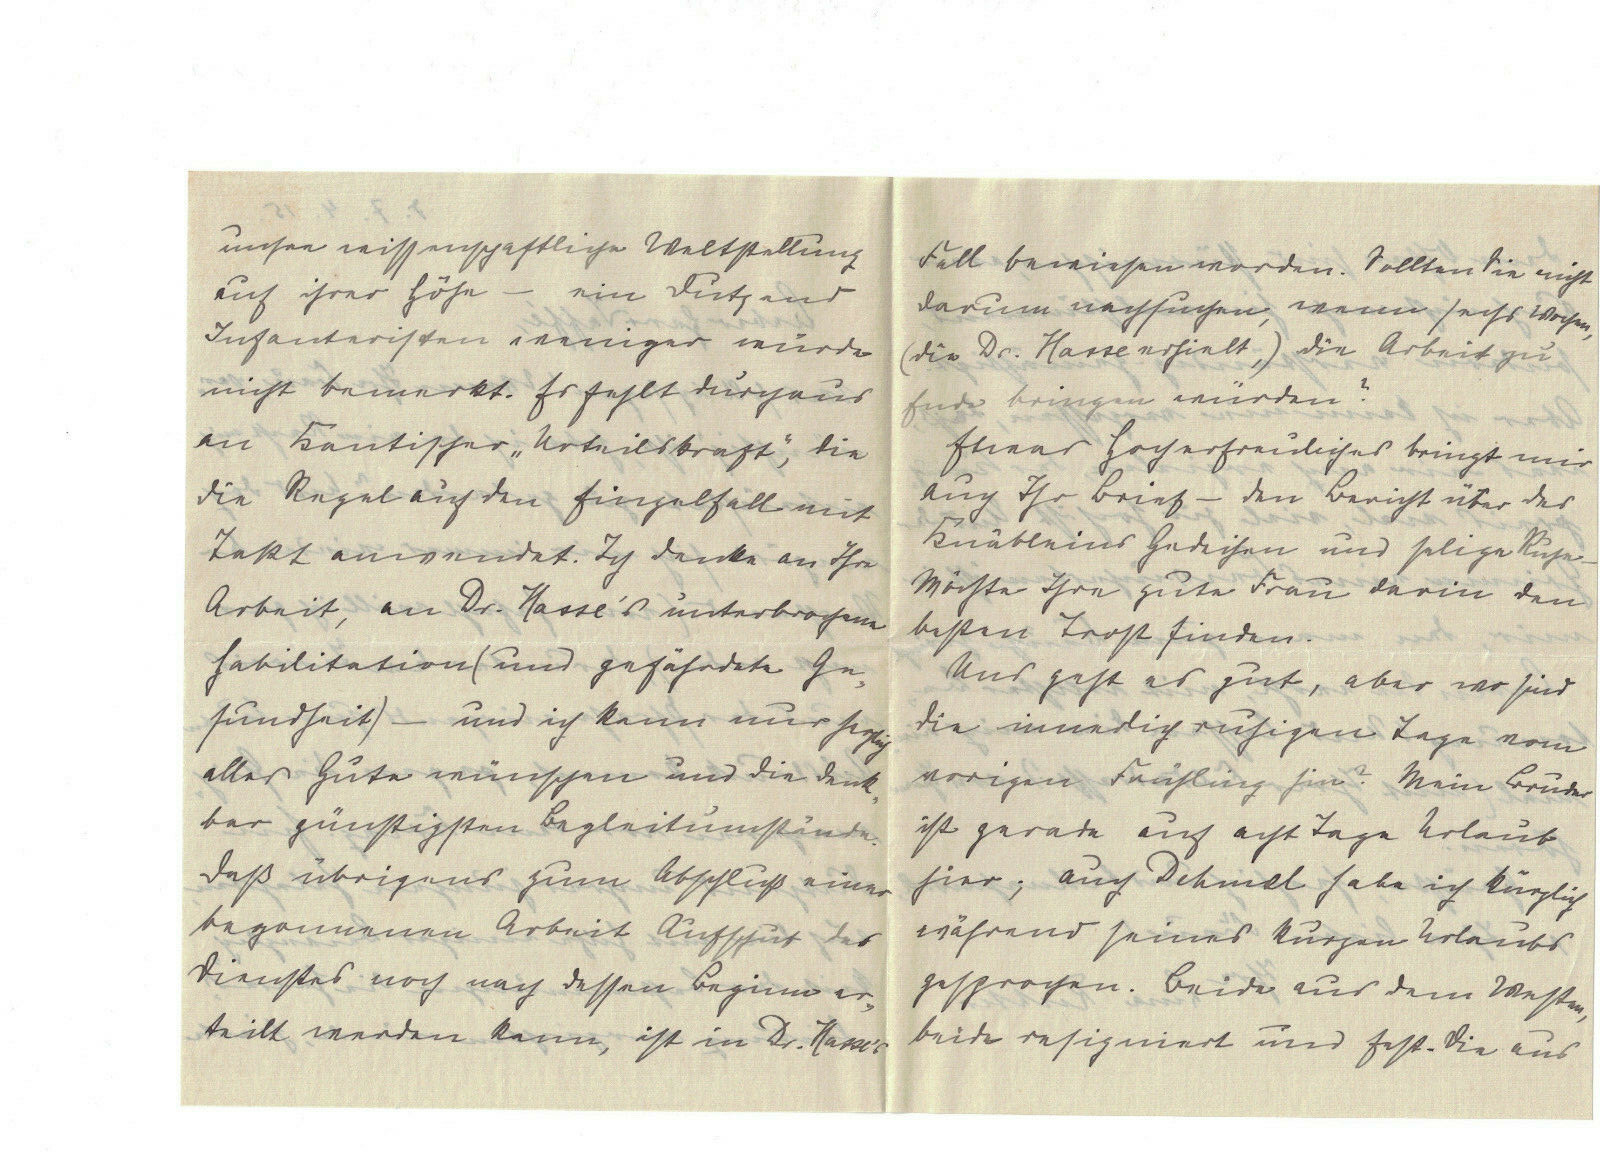 unsre wissenschaftliche Weltstellung
auf ihrer Höhe – ein Dutzend
Infanteristen weniger würde
nicht bemerkt. Es fehlt durchaus
an Kantischer „Urteilskraft“, die
die Regel auf den Einzelfall mit
Takt anwendet. Ich denke an Ihre
Arbeit, an Dr. Hasse's unterbrochene
Habilitation (und gefährdete Ge-
sundheit) – und ich kann nur herzlich
alles Gute wünschen und die denk-
bar günstigsten Begleitumstände.
Daß übrigens zum Abschluß einer
begonnenen Arbeit Aufschub des
Dienstes noch nach dessen Beginn er-
teilt werden kann, ist in Dr. Hasse's
Fall bewiesen worden. Sollten Sie nicht
darum nachsuchen, wenn sechs Wochen,
(die Dr. Hasse erhielt,) die Arbeit zu
Ende bringen würden?
Etwas Hocherfreuliches bringt mir
auch Ihr Brief – den Bericht über des
Knäbleins Gedeihen und selige Ruhe –
Möchte Ihre gute Frau darin den
besten Trost finden.
Uns geht es gut, aber wo sind
die innerlich ruhigen Tage vom
vorigen Frühling hin? Mein Bruder
ist gerade auf acht Tage Urlaub
hier; auch Dehmel habe ich kürzlich
während seines kurzen Urlaubs
gesprochen. Beide aus dem Westen,
beide resigniert und fest. Die aus